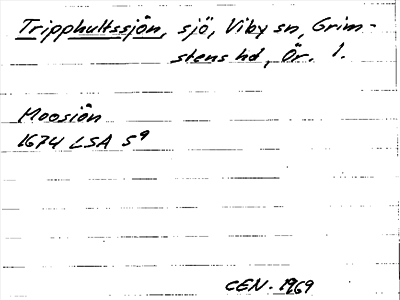 Tripphultssjön, sjö, Viby sn, Grim-
stens hd, Ör. l.
Moosiön
1674 LSA S9
CEN. 1969